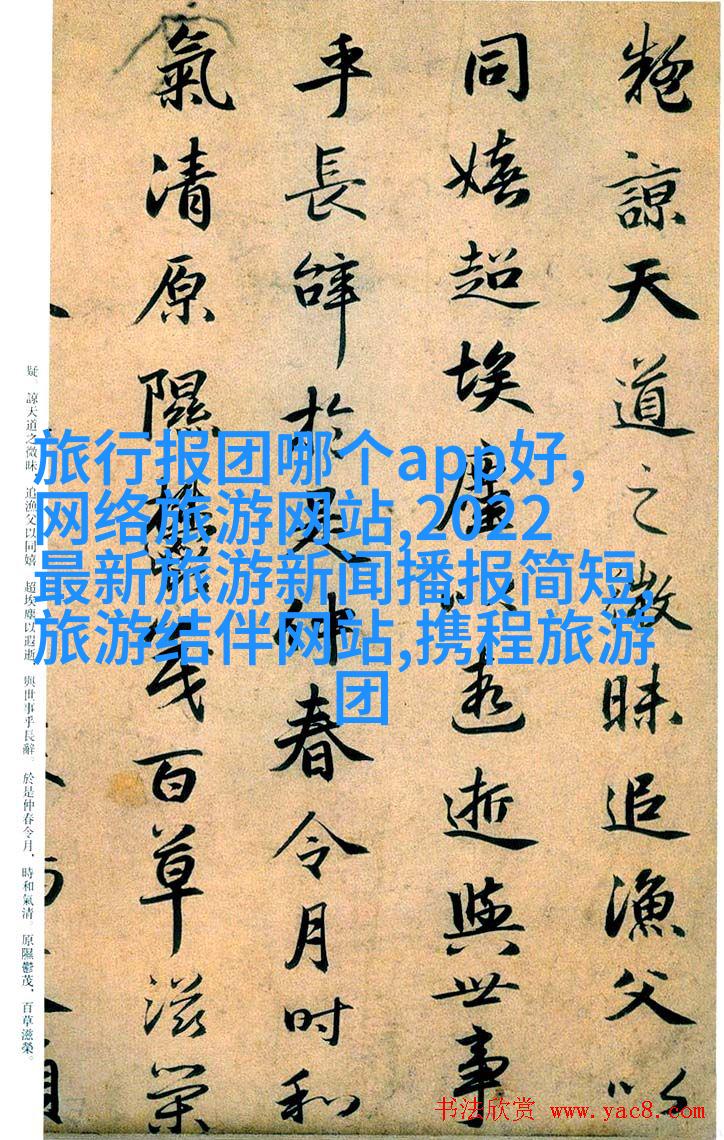 疑諒天道之微昧追漁父以
同嬉超埃塵以遐逝與世事
乎長辭於是仲春令月時和
氣清原隰鬱茂百草滋榮
疑。諒天道之微昧，追漁父以同嬉。超埃塵以遐逝，與世事乎長辭。於是仲春令月，時和氣清。原隰鬱茂，百草滋榮。
旅行报团哪个app好,
网络旅游网站,2022
最新旅游新闻播报简短,
旅游结伴网站,携程旅游
团
书法欣赏 www.yac8.com